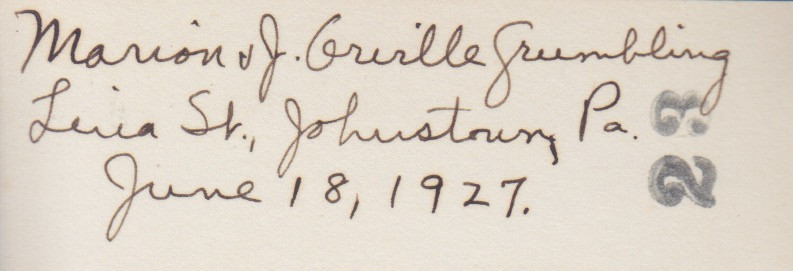 Marion & J. Orville Grumbling
Leila St., Johnstown, Pa.
June 18, 1927.
23